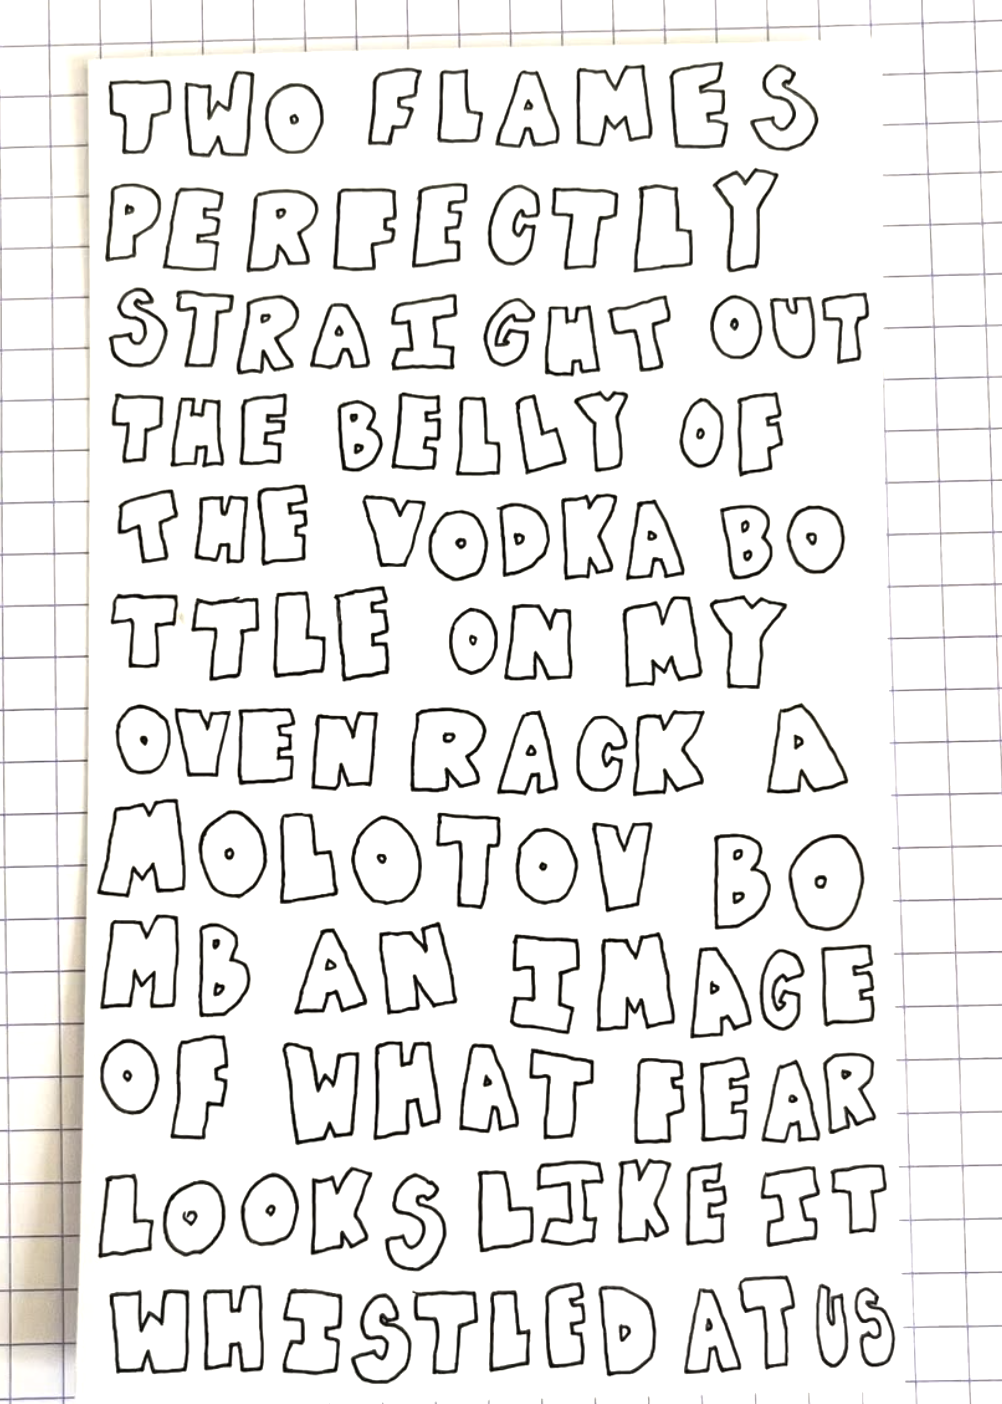 TWO FLAMES
PERFECTLY
STRAIGHT OUT
THE BELLY OF
THE VODKA BO
TTLE ON MY
OVEN RACK A
MOLOTOV BO
MB AN IMAGE
OF WHAT FEAR
LOOKS LIKE IT
WHISTLED AT US